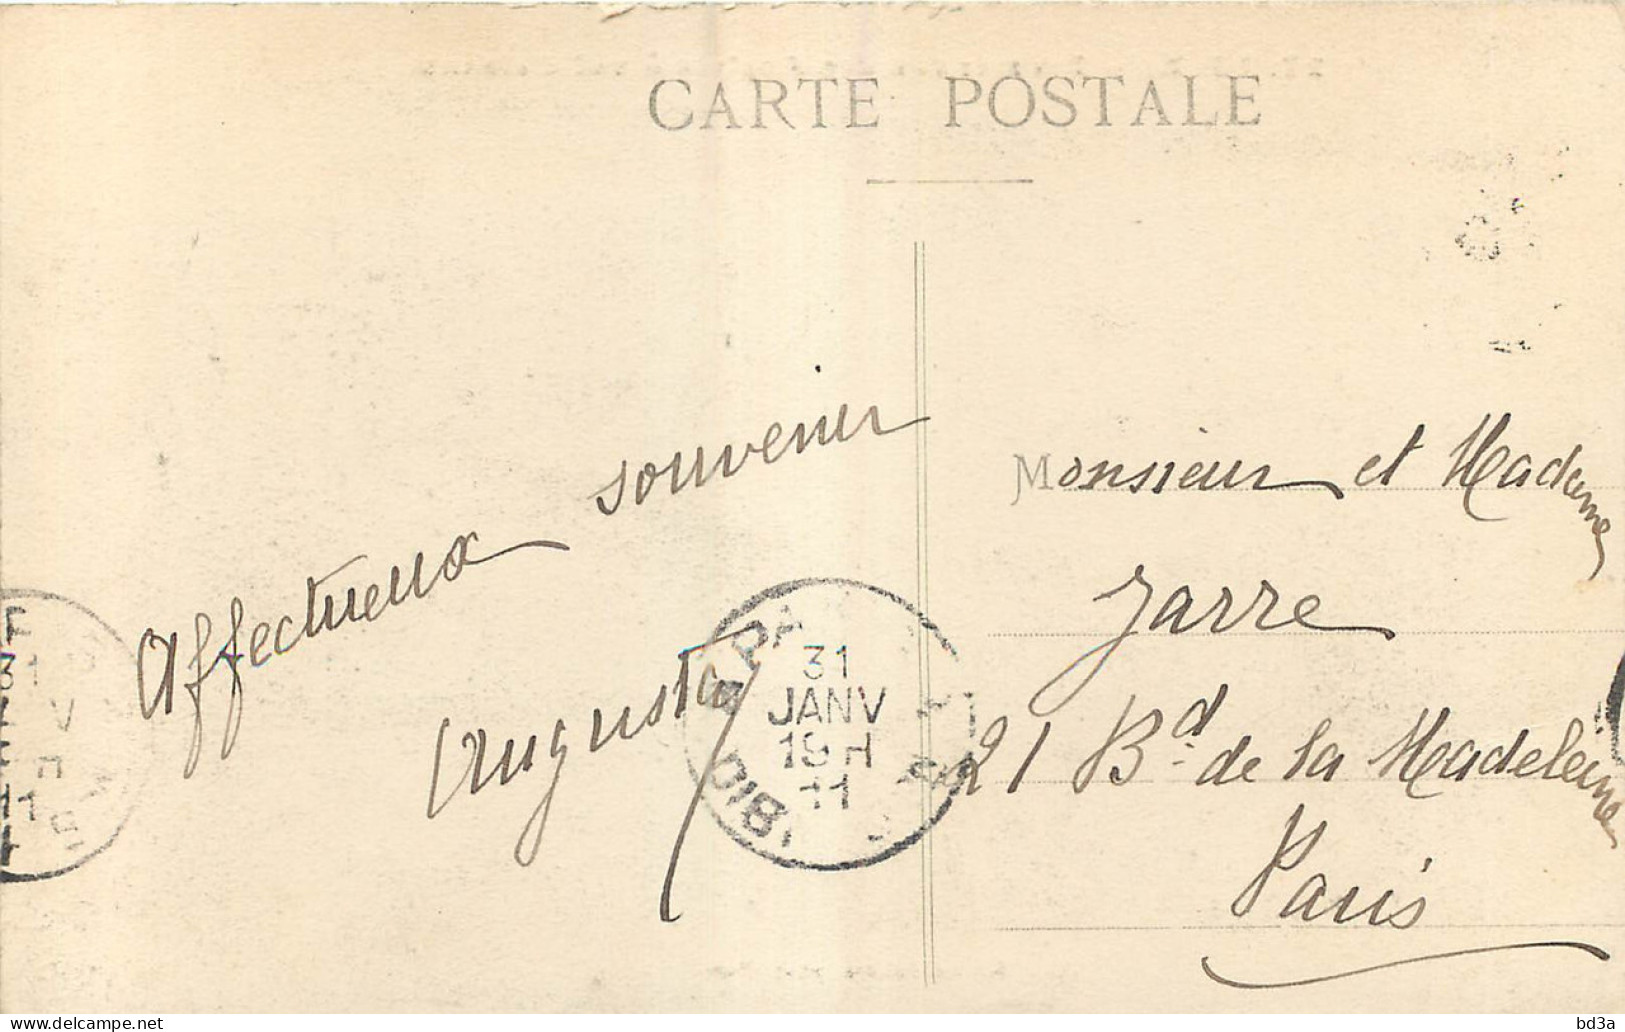 CARTE POSTALE
Affectueux souvenir
Augusta
31
JANV
19 H
11
Monsieur et Madame
Jarre
21 Bd de la Madeleine
Paris
delcampe.net
bd3a